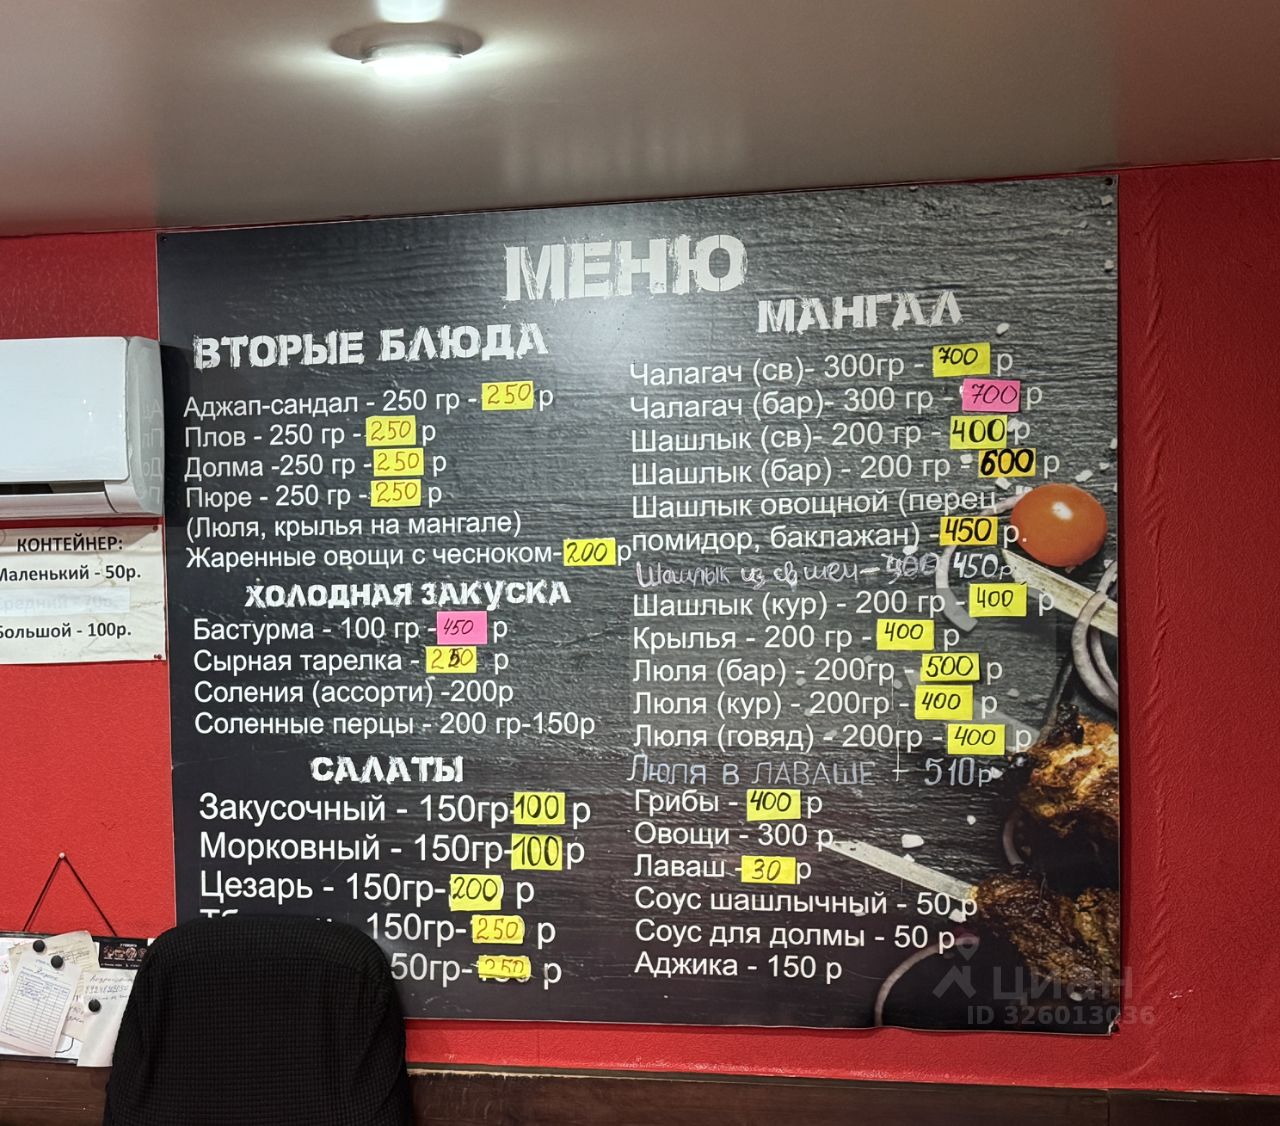 МЕНЮ
ВТОРЫЕ БЛЮДА
Аджап-сандал - 250 гр - 250 р
Плов - 250 гр - 250 р
Долма -250 гр - 250 р
Пюре - 250 гр - 250 р
(Люля, крылья на мангале)
Жаренные овощи с чесноком- 200 р
ХОЛОДНАЯ ЗАКУСКА
Бастурма - 100 гр - 450 р
Сырная тарелка - 250 р
Соления (ассорти) -200р
Соленные перцы - 200 гр-150р
САЛАТЫ
Закусочный - 150гр- 100 р
Морковный - 150гр- 100 р
Цезарь - 150гр- 200 р
150гр- 250 р
50гр- 250 р
МАНГАЛ
Чалагач (св)- 300гр - 700 р
Чалагач (бар)- 300 гр - 700 р
Шашлык (св)- 200 гр - 400 р
Шашлык (бар) - 200 гр - 600 р
Шашлык овощной (перец
помидор, баклажан) - 450 р.
Шашлык из св шеи - 450р
Шашлык (кур) - 200 гр - 400 р
Крылья - 200 гр - 400 р
Люля (бар) - 200гр - 500 р
Люля (кур) - 200гр - 400 р
Люля (говяд) - 200гр - 400 р
ЛЮЛЯ В ЛАВАШЕ - 510р
Грибы - 400 р
Овощи - 300 р
Лаваш - 30 р
Соус шашлычный - 50 р
Соус для долмы - 50 р
Аджика - 150 р
КОНТЕЙНЕР:
Маленький - 50р.
Средний - 70р.
Большой - 100р.
Циан
ID 326013036